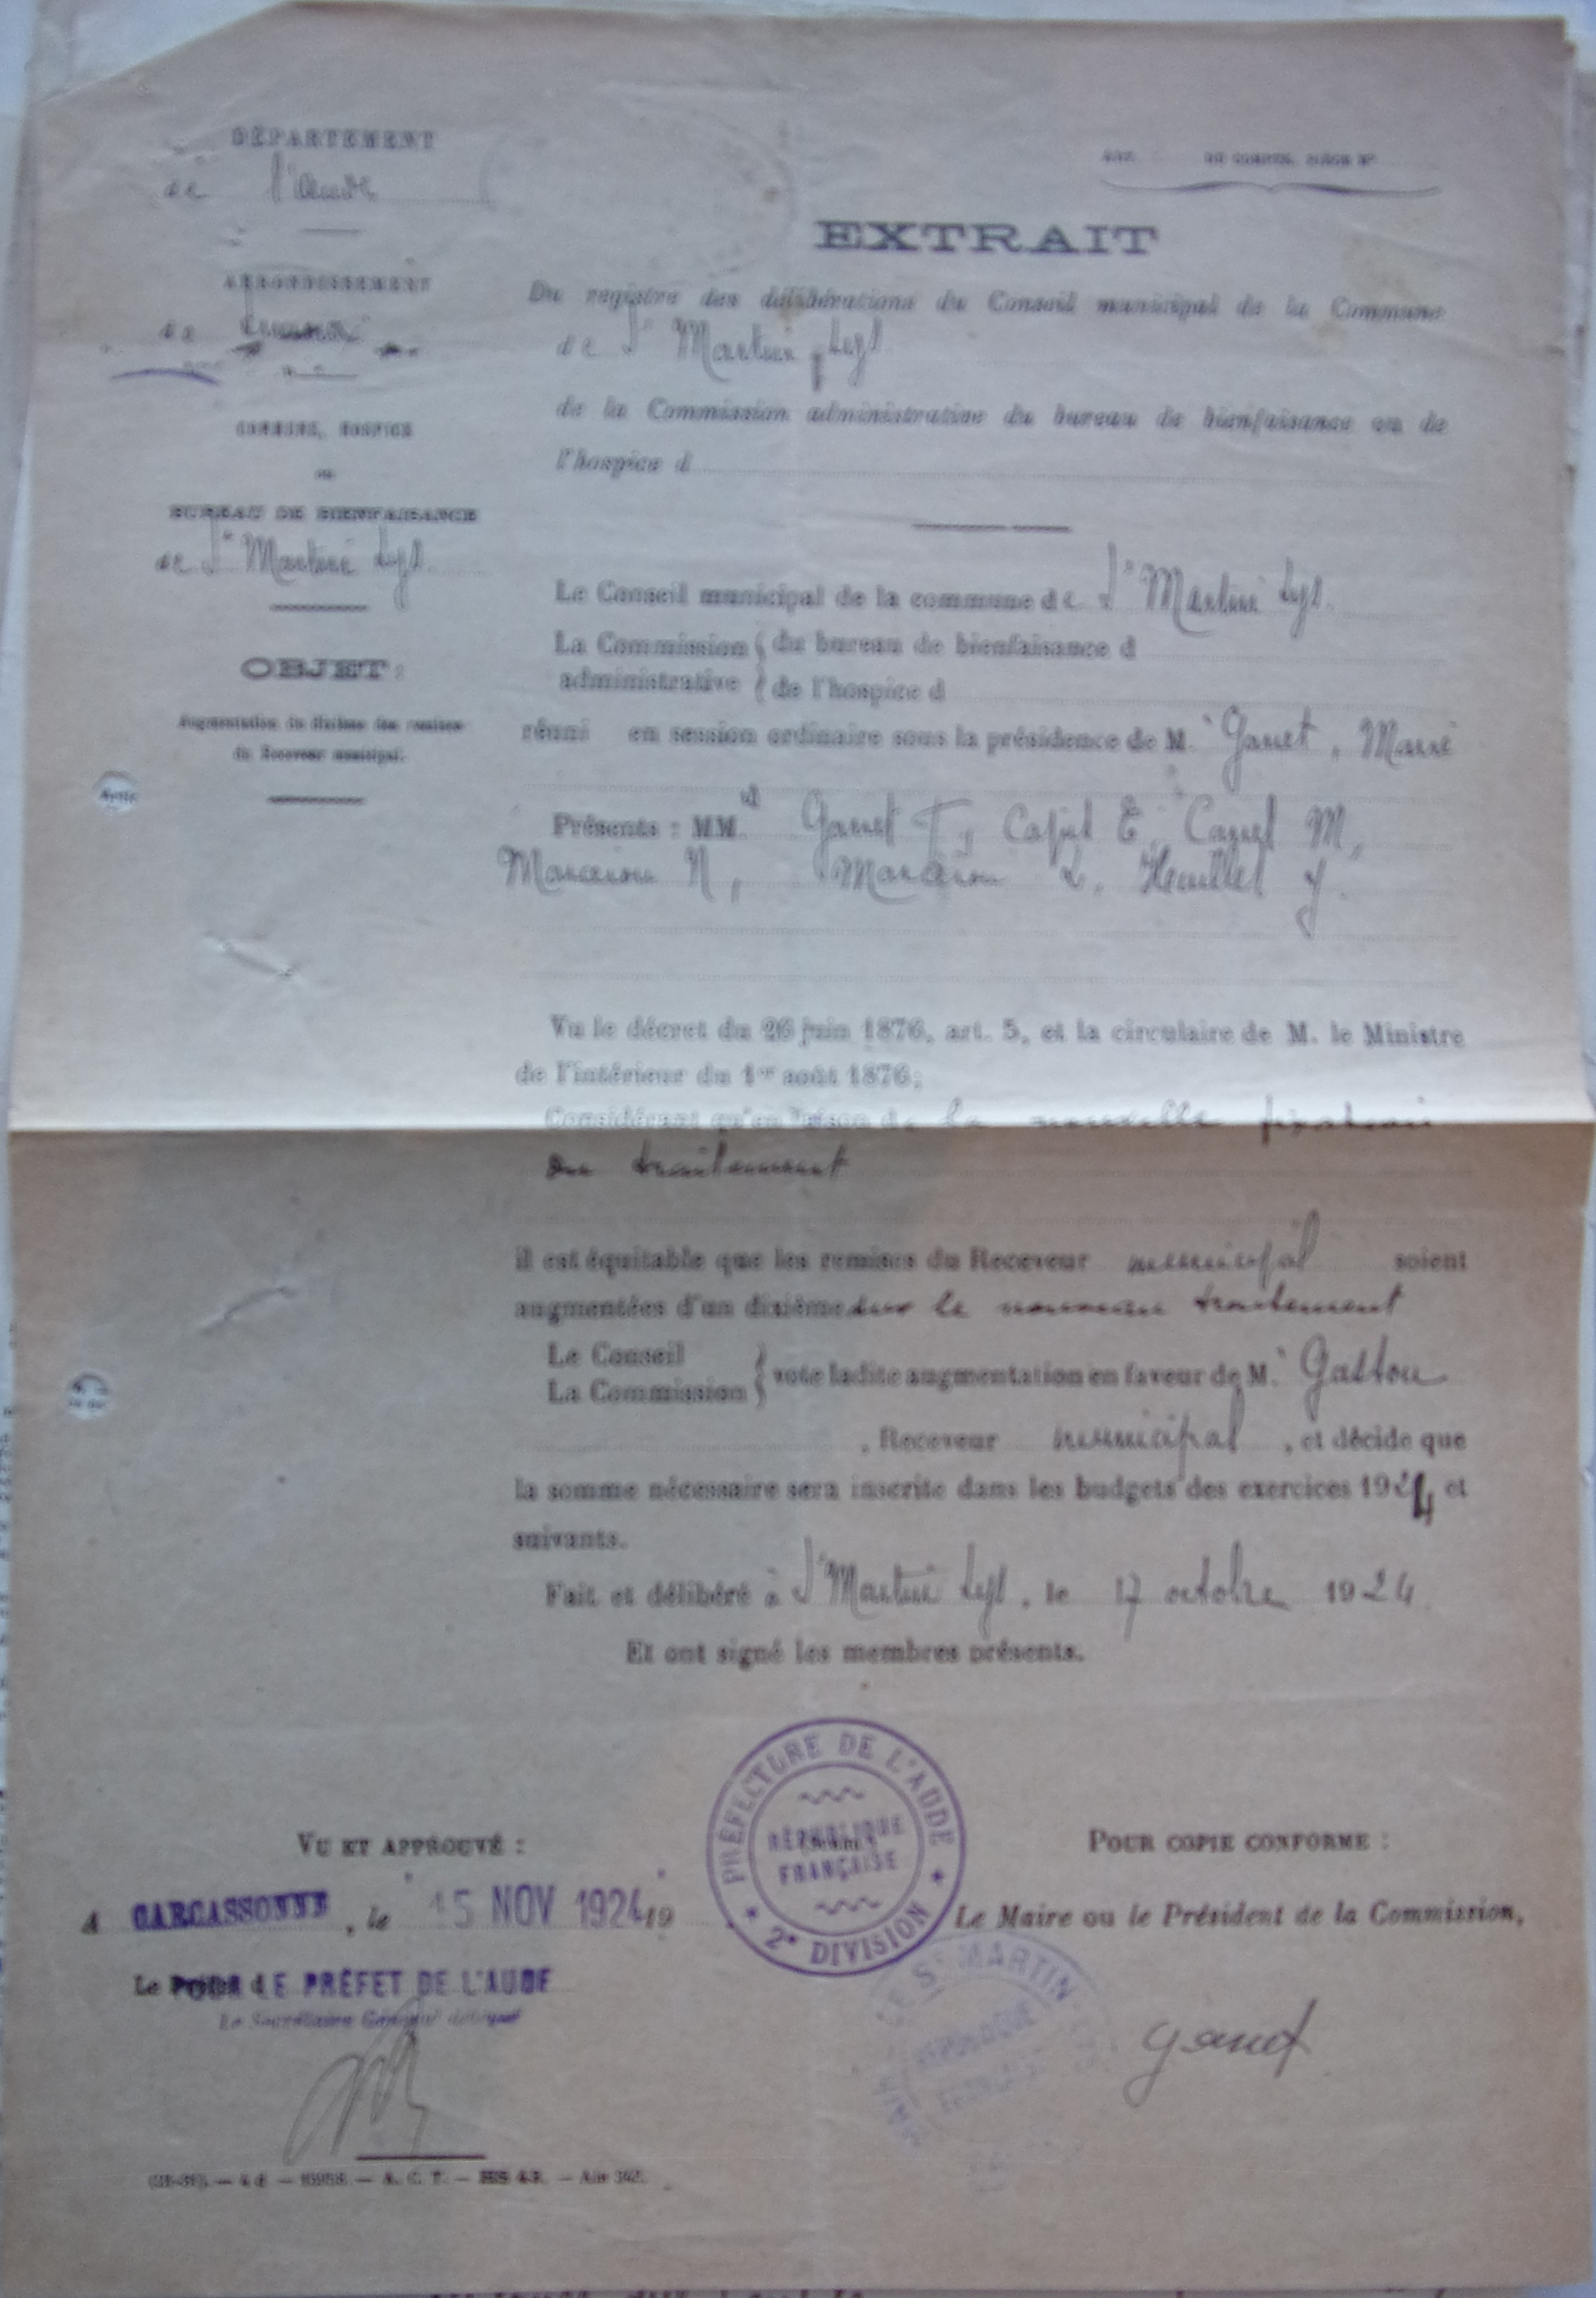 DÉPARTEMENT
de l'Aude
ARRONDISSEMENT
de
COMMUNE, HOSPICE
ou
BUREAU DE BIENFAISANCE
de St Martin Lys
OBJET :
Augmentation du dixième des remises
du Receveur municipal.
EXTRAIT
Du registre des délibérations du Conseil municipal de la Commune
de St Martin Lys
de la Commission administrative du bureau de bienfaisance ou de
l'hospice d
Le Conseil municipal de la commune de St Martin Lys
La Commission du bureau de bienfaisance d
administrative de l'hospice d
réuni en session ordinaire sous la présidence de M. Ganet, Maire
Présents : MM. Ganet F, E, M,
N, L, J.
Vu le décret du 26 juin 1876, art. 5, et la circulaire de M. le Ministre
de l'intérieur du 1er août 1876;
Considérant qu'en raison de la nouvelle fixation
du traitement
il est équitable que les remises du Receveur municipal soient
augmentées d'un dixième sur le nouveau traitement
Le Conseil
La Commission vote ladite augmentation en faveur de M. Gastou
, Receveur municipal, et décide que
la somme nécessaire sera inscrite dans les budgets des exercices 1924 et
suivants.
Fait et délibéré à St Martin Lys, le 17 octobre 1924
Et ont signé les membres présents.
PRÉFECTURE DE L'AUDE
RÉPUBLIQUE
FRANÇAISE
2e DIVISION
VU ET APPROUVÉ :
A CARCASSONNE, le 15 NOV 1924 19
Le POUR LE PRÉFET DE L'AUDE
Le Secrétaire Général délégué
POUR COPIE CONFORME :
Le Maire ou le Président de la Commission,
ST MARTIN
Ganet